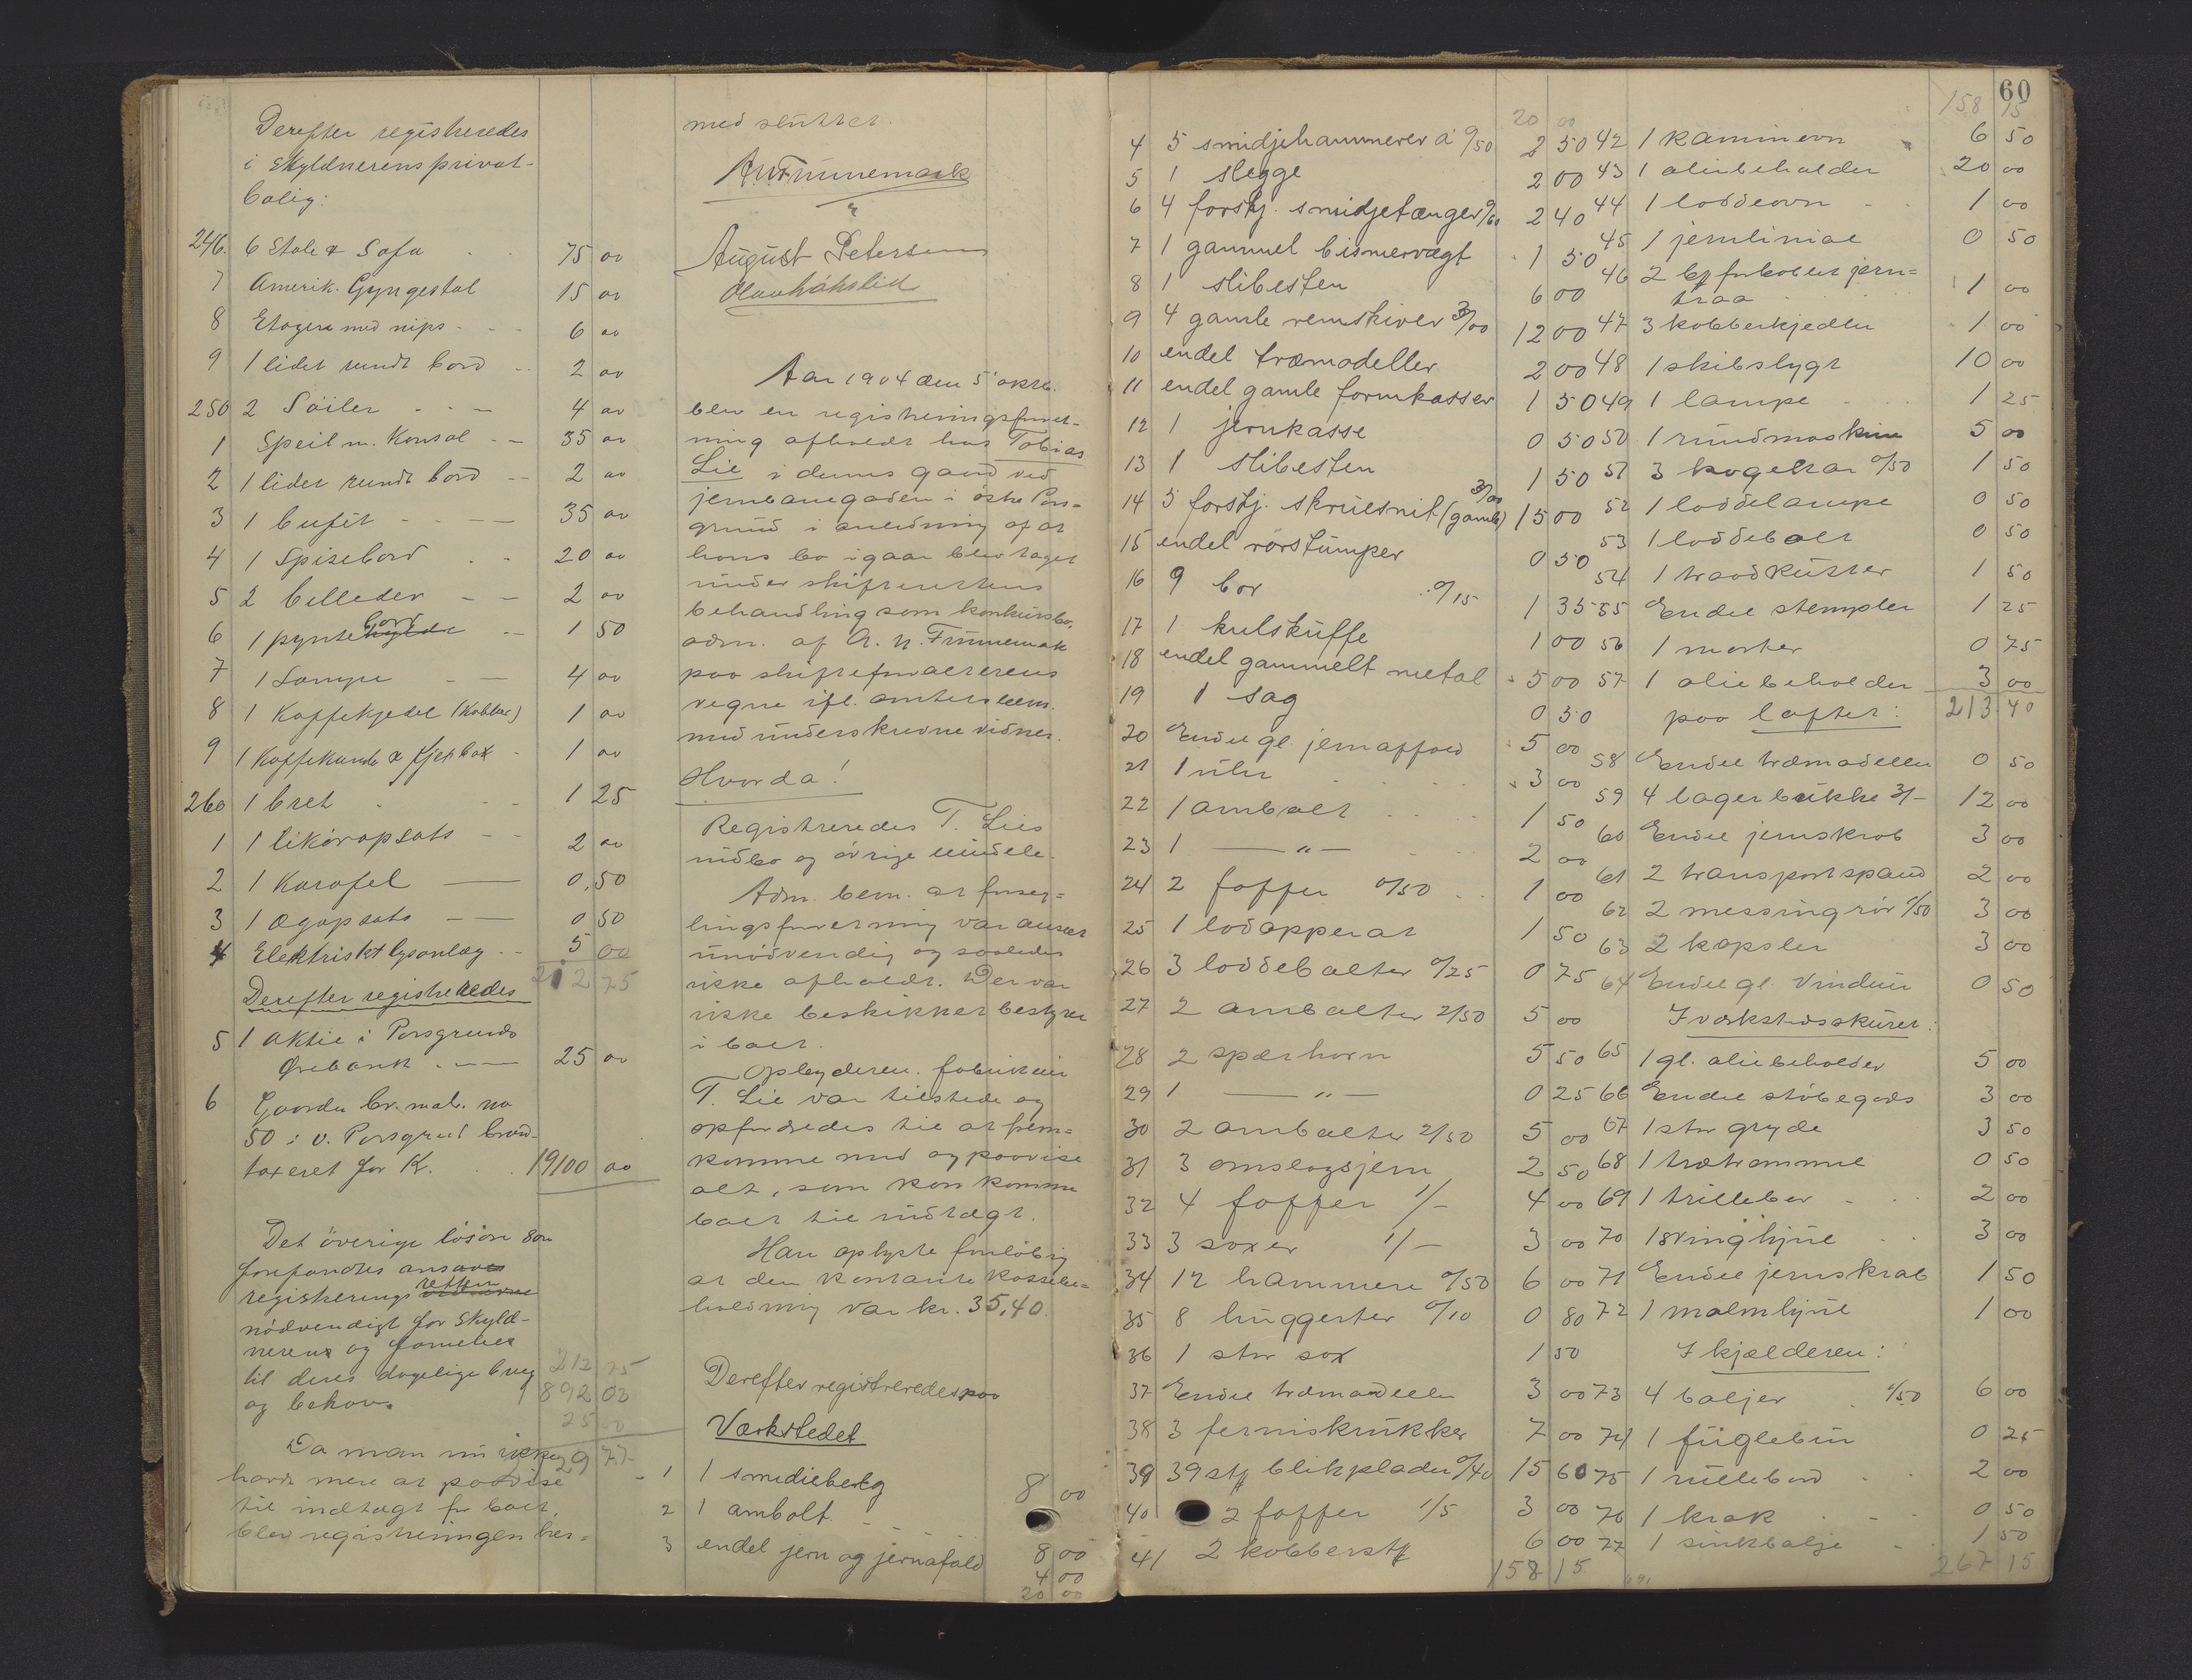 Derefter registreredes
i Skyldnerens privat-
bolig:
246. 6 Stole & Sofa 75 00
7 Amerik. Gyngestol 15 00
8 Etagere med nips 6 00
9 1 lidet rundt bord 2 00
250 2 Söiler 4 00
1 Speil m. Konsol 35 00
2 1 lidet rundt bord 2 00
3 1 bufet 35 00
4 1 Spisebord 20 00
5 2 billeder 2 00
6 1 pyntebord 1 50
7 1 Lampe 4 00
8 1 Kaffekjedel (Kobber) 1 00
9 1 Kaffekande & 1 00
260 1 bret 1 25
1 1 liköropsats 2 00
2 1 Karafel 0,50
3 1 Ægopsats 0 50
4 Elektriskt lysanlæg 5 00
212 75
Derefter registreredes
5 1 Aktie i Porsgrunds
Örebank 25 00
6 Gaarden br. mat. no
50 i v. Porsgrund brand-
taxeret for K. 19100 00
Det överige lösöre som
forefandtes ansaaes
registrerings retten
nödvendigt for Skyld-
neren og familier
til deres dagelige brug 212 75
og behov. 892 03
25 00
Da man nu ikke
havde mere at paavise
til indtægt for boet,
blev registreringen her-
med sluttet.
A. N. Frünnemark
August Petersen
Aar 1904 den 5' oktb.
blev en registreringsforret-
ning afholdt hos Tobias
Lie i dennes gaard ved
jernbanegaden i östre Pors-
grund i anledning af at
hans bo igaar blev taget
under skifterettens
behandling som konkursbo,
adm. af A. N. Frünnemark
paa skifteforvalterens
vegne ifl. amtets bem.
med underskrevne vidner.
Hvorda!
Registreredes T. Lies
indbo og övrige eiendele.
Adm. bem. at forseg-
lingsforretning var anseet
unödvendig og saaledes
ikke afholdt. Der var
ikke beskikket bestyrer
i boet.
Opbyderen fabrikeier
T. Lie var tilstede og
opfordredes til at frem-
komme med og paavise
alt, som kan komme
boet til indtægt.
Han oplyste foreløbig
at den kontante kassebe-
holdning var kr. 35,40.
Derefter registreredes paa
Værkstedet
1 1 smedieberlg 8 00
2 1 ambolt 8 00
3 endel jern og jernafald 4 00
20 00
60
20 00
4 5 smidjehammerer à 0/50 2 50
5 1 slegge 2 00
6 4 forskj. smidjetænger 0/60 2 40
7 1 gammel bismervægt 1 50
8 1 slibesten 6 00
9 4 gamle remskiver 3/00 12 00
10 endel træmodeller 2 00
11 endel gamle formkasser 1 50
12 1 jernkasse 0 50
13 1 slibesten 1 50
14 5 forskj. skruesnit (gamle) 3/00 15 00
15 endel rörstumper 0 50
16 9 bor 0/15 1 35
17 1 kulskuffe 1 00
18 endel gammelt metal 5 00
19 1 sag 0 50
20 Endel gl. jernaffald 5 00
21 1 uhr 3 00
22 1 ambolt 1 50
23 1 — " — 2 00
24 2 foffer 0/50 1 00
25 1 lodapperat 1 50
26 3 loddebolter 0/25 0 75
27 2 ambolter 2/50 5 00
28 2 spærhorn 5 50
29 1 — " — 0 25
30 2 ambolter 2/50 5 00
31 3 omslagsjern 2 50
32 4 foffer 1/- 4 00
33 3 saxer 1/- 3 00
34 12 hammere 0/50 6 00
35 8 huggerter 0/10 0 80
36 1 stor sax 1 50
37 Endel træmodeller 3 00
38 3 ferniskrukker 7 00
39 39 stk blikplader 0/40 15 60
40 2 foffer 1/5 3 00
41 2 kobberstk 6 00
158 15
158 15
42 1 kaminovn 6 50
43 1 oliebeholder 20 00
44 1 loddeovn 1 00
45 1 jernlinial 0 50
46 2 jern-
traa 1 00
47 3 kobberkjedler 1 00
48 1 skibslygt 10 00
49 1 lampe 1 25
50 1 rundmaskine 5 00
51 3 kogekar 0/50 1 50
52 1 loddelampe 0 50
53 1 loddebolt 0 50
54 1 traadkutter 1 50
55 Endel stempler 1 25
56 1 morter 0 75
57 1 oliebeholder 3 00
213.40
paa loftet:
58 Endel træmodeller 0 50
59 4 lagerbukke 3/- 12 00
60 Endel jernskrab 3 00
61 2 transportspand 2 00
62 2 messingrör 1/50 3 00
63 2 kapsler 3 00
64 Endel gl. vinduer 0 50
I værkstedsskuret:
65 1 gl. oliebeholder 5 00
66 Endel stöbegods 3 00
67 1 stor gryde 3 50
68 1 trætromme 0 50
69 1 trillebør 2 00
70 1 svinghjul 3 00
71 Endel jernskrab 1 50
72 1 malmhjul 1 00
I kjælderen:
73 4 baljer 1/50 6 00
74 1 fuglebur 0 25
75 1 rullebord 2 00
76 1 krak 0 50
77 1 sinkbalje 1 50
267 15